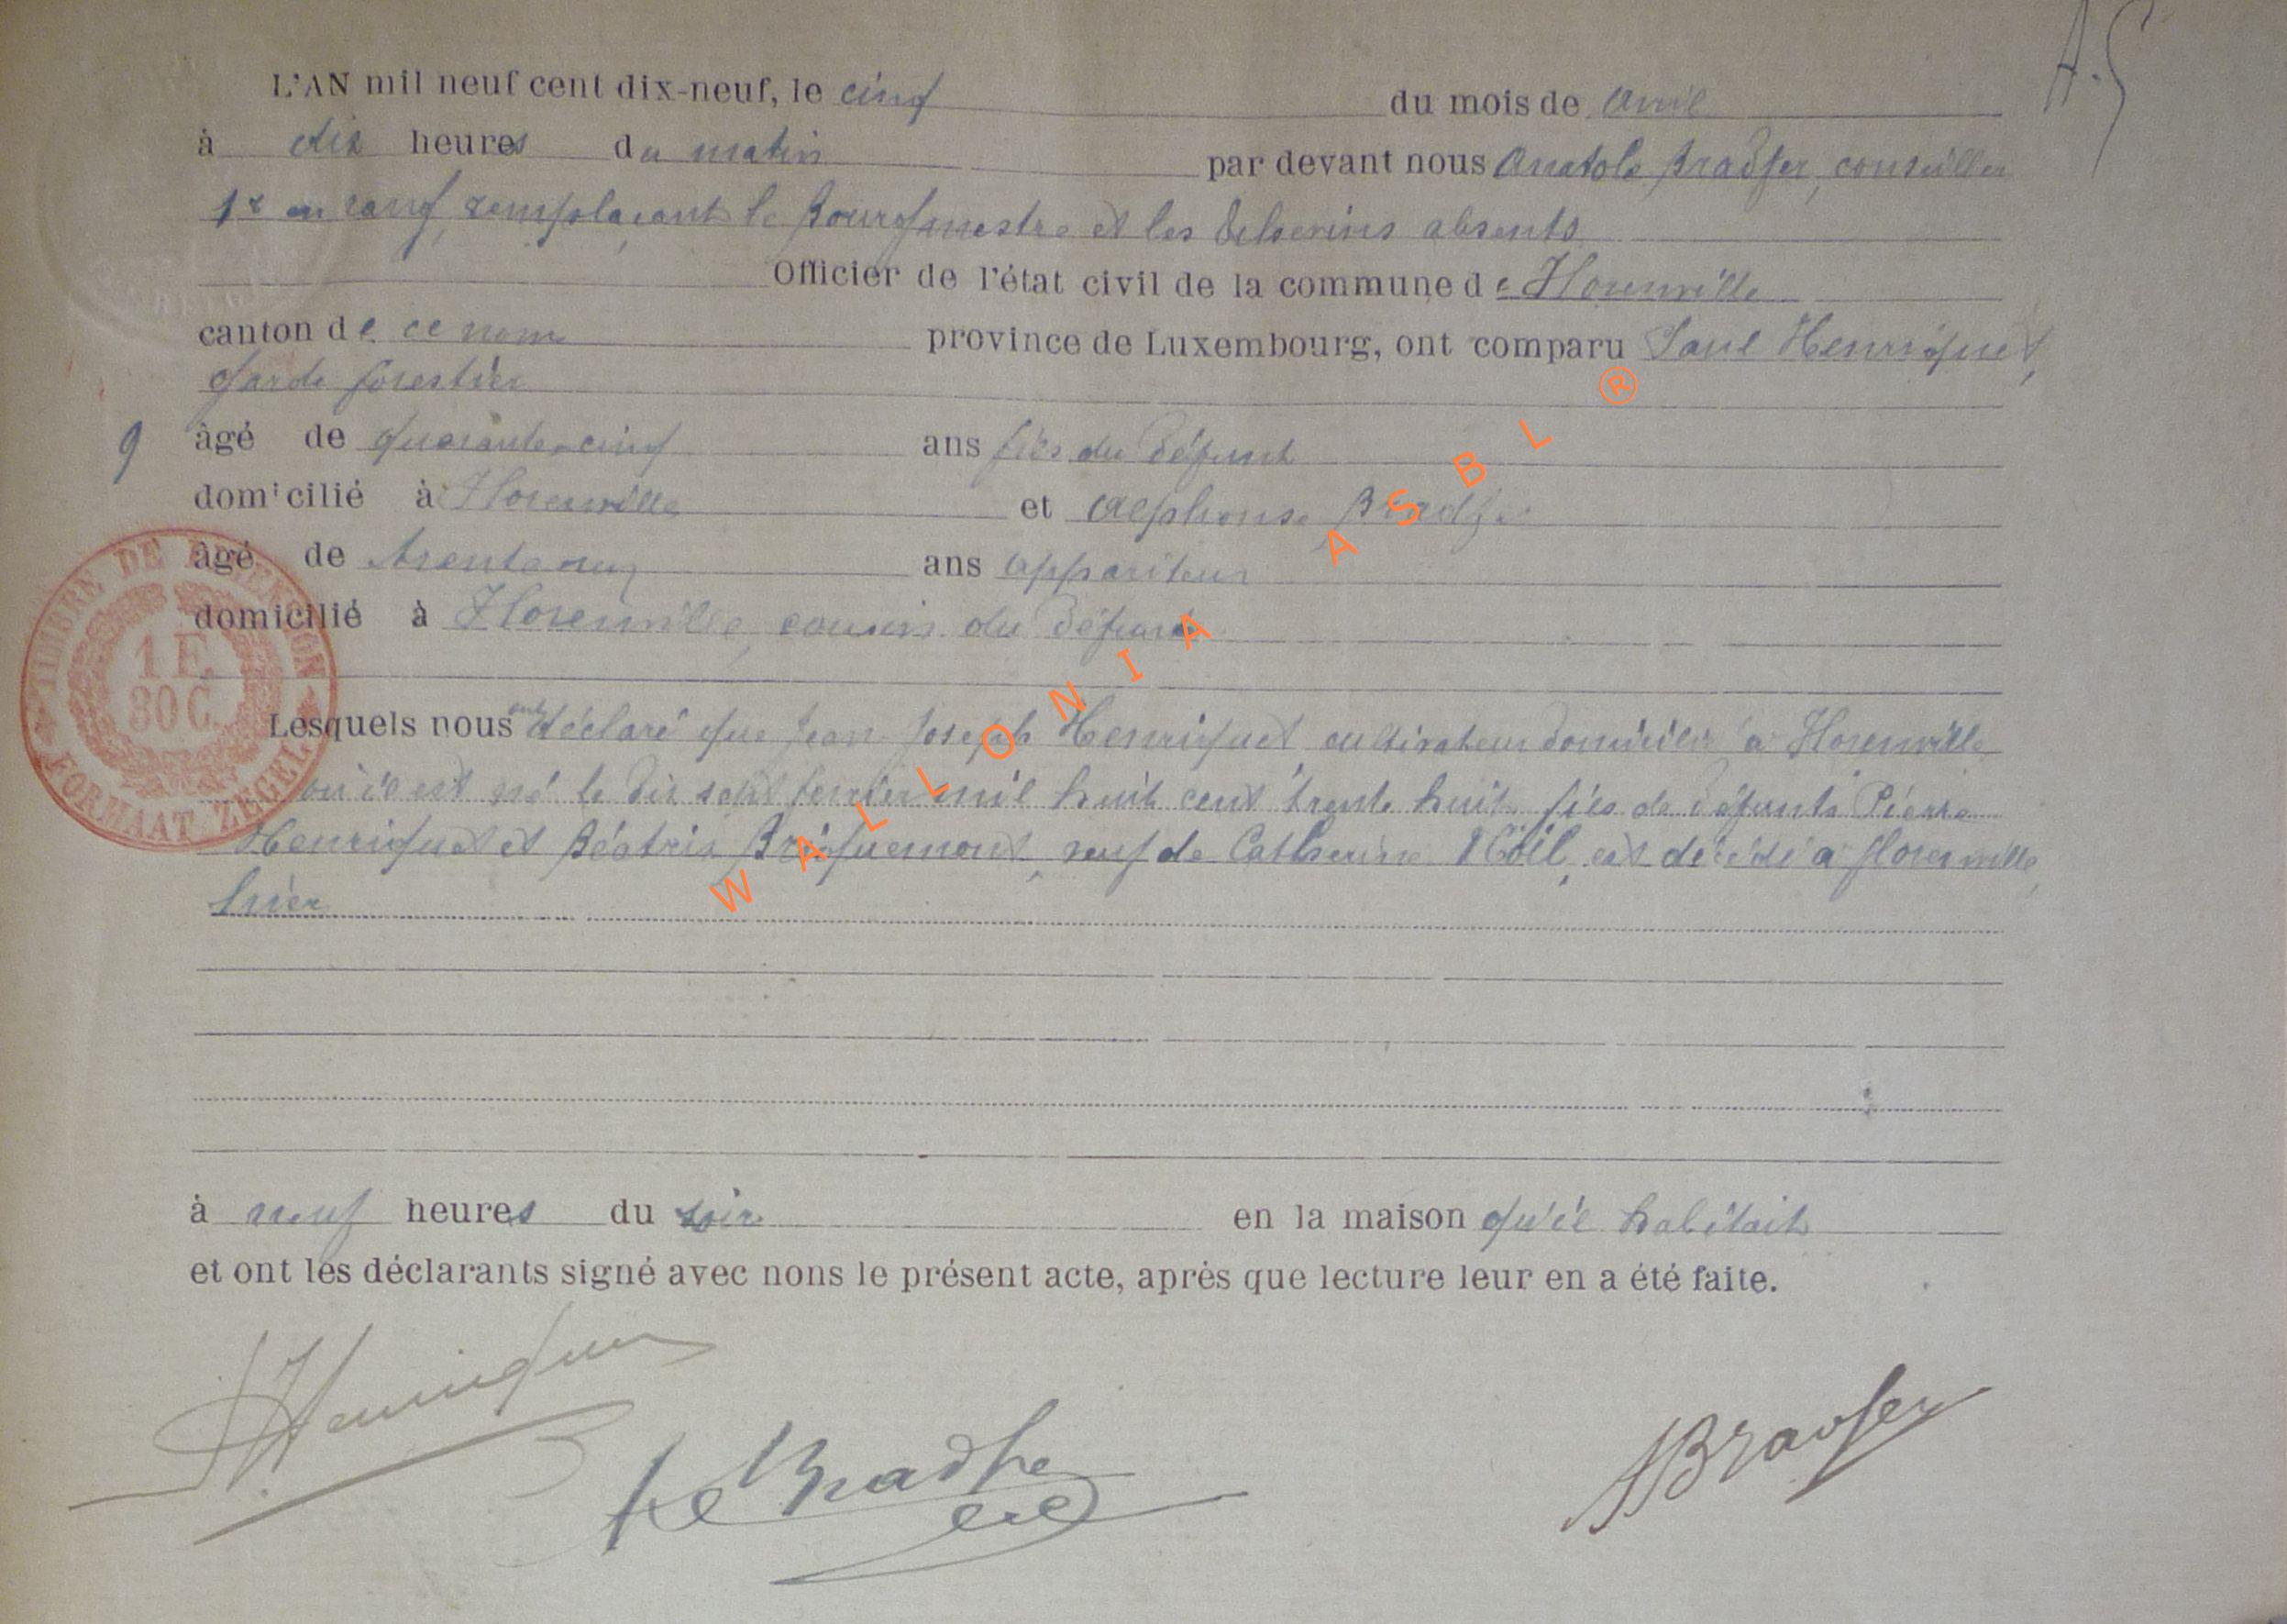 A.S
L'AN mil neuf cent dix-neuf, le cinq du mois de Avril
à dix heures du matin par devant nous Anatole Bradfer, conseiller
1r en rang, remplaçant le Bourgmestre et les Echevins absents
Officier de l'état civil de la commune de Florenville
canton de ce nom province de Luxembourg, ont comparu Paul Henriquet,
garde forestier
9 âgé de quarante-cinq ans fils du défunt
domicilié à Florenville et Alphonse Bradfer
âgé de ans appariteur
domicilié à Florenville, cousin du défunt
Lesquels nous ont déclaré que Jean Joseph Henriquet, cultivateur domicilié à Florenville
où il est né le dix sept février mil huit cent trente huit, fils de défunts Pierre
Henriquet et Béatrix Briquemont, veuf de Catherine Noël, est décédé à Florenville,
hier
à neuf heures du soir en la maison qu'il habitait
et ont les déclarants signé avec nons le présent acte, après que lecture leur en a été faite.
Henriquet
Al Bradfer
ABradfer
TIMBRE DE DIMENSION
1 F.
30 C.
FORMAAT ZEGEL
WALLONIA ASBL ®